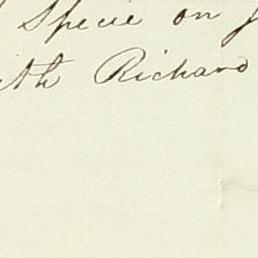 Specie on
ith Richard